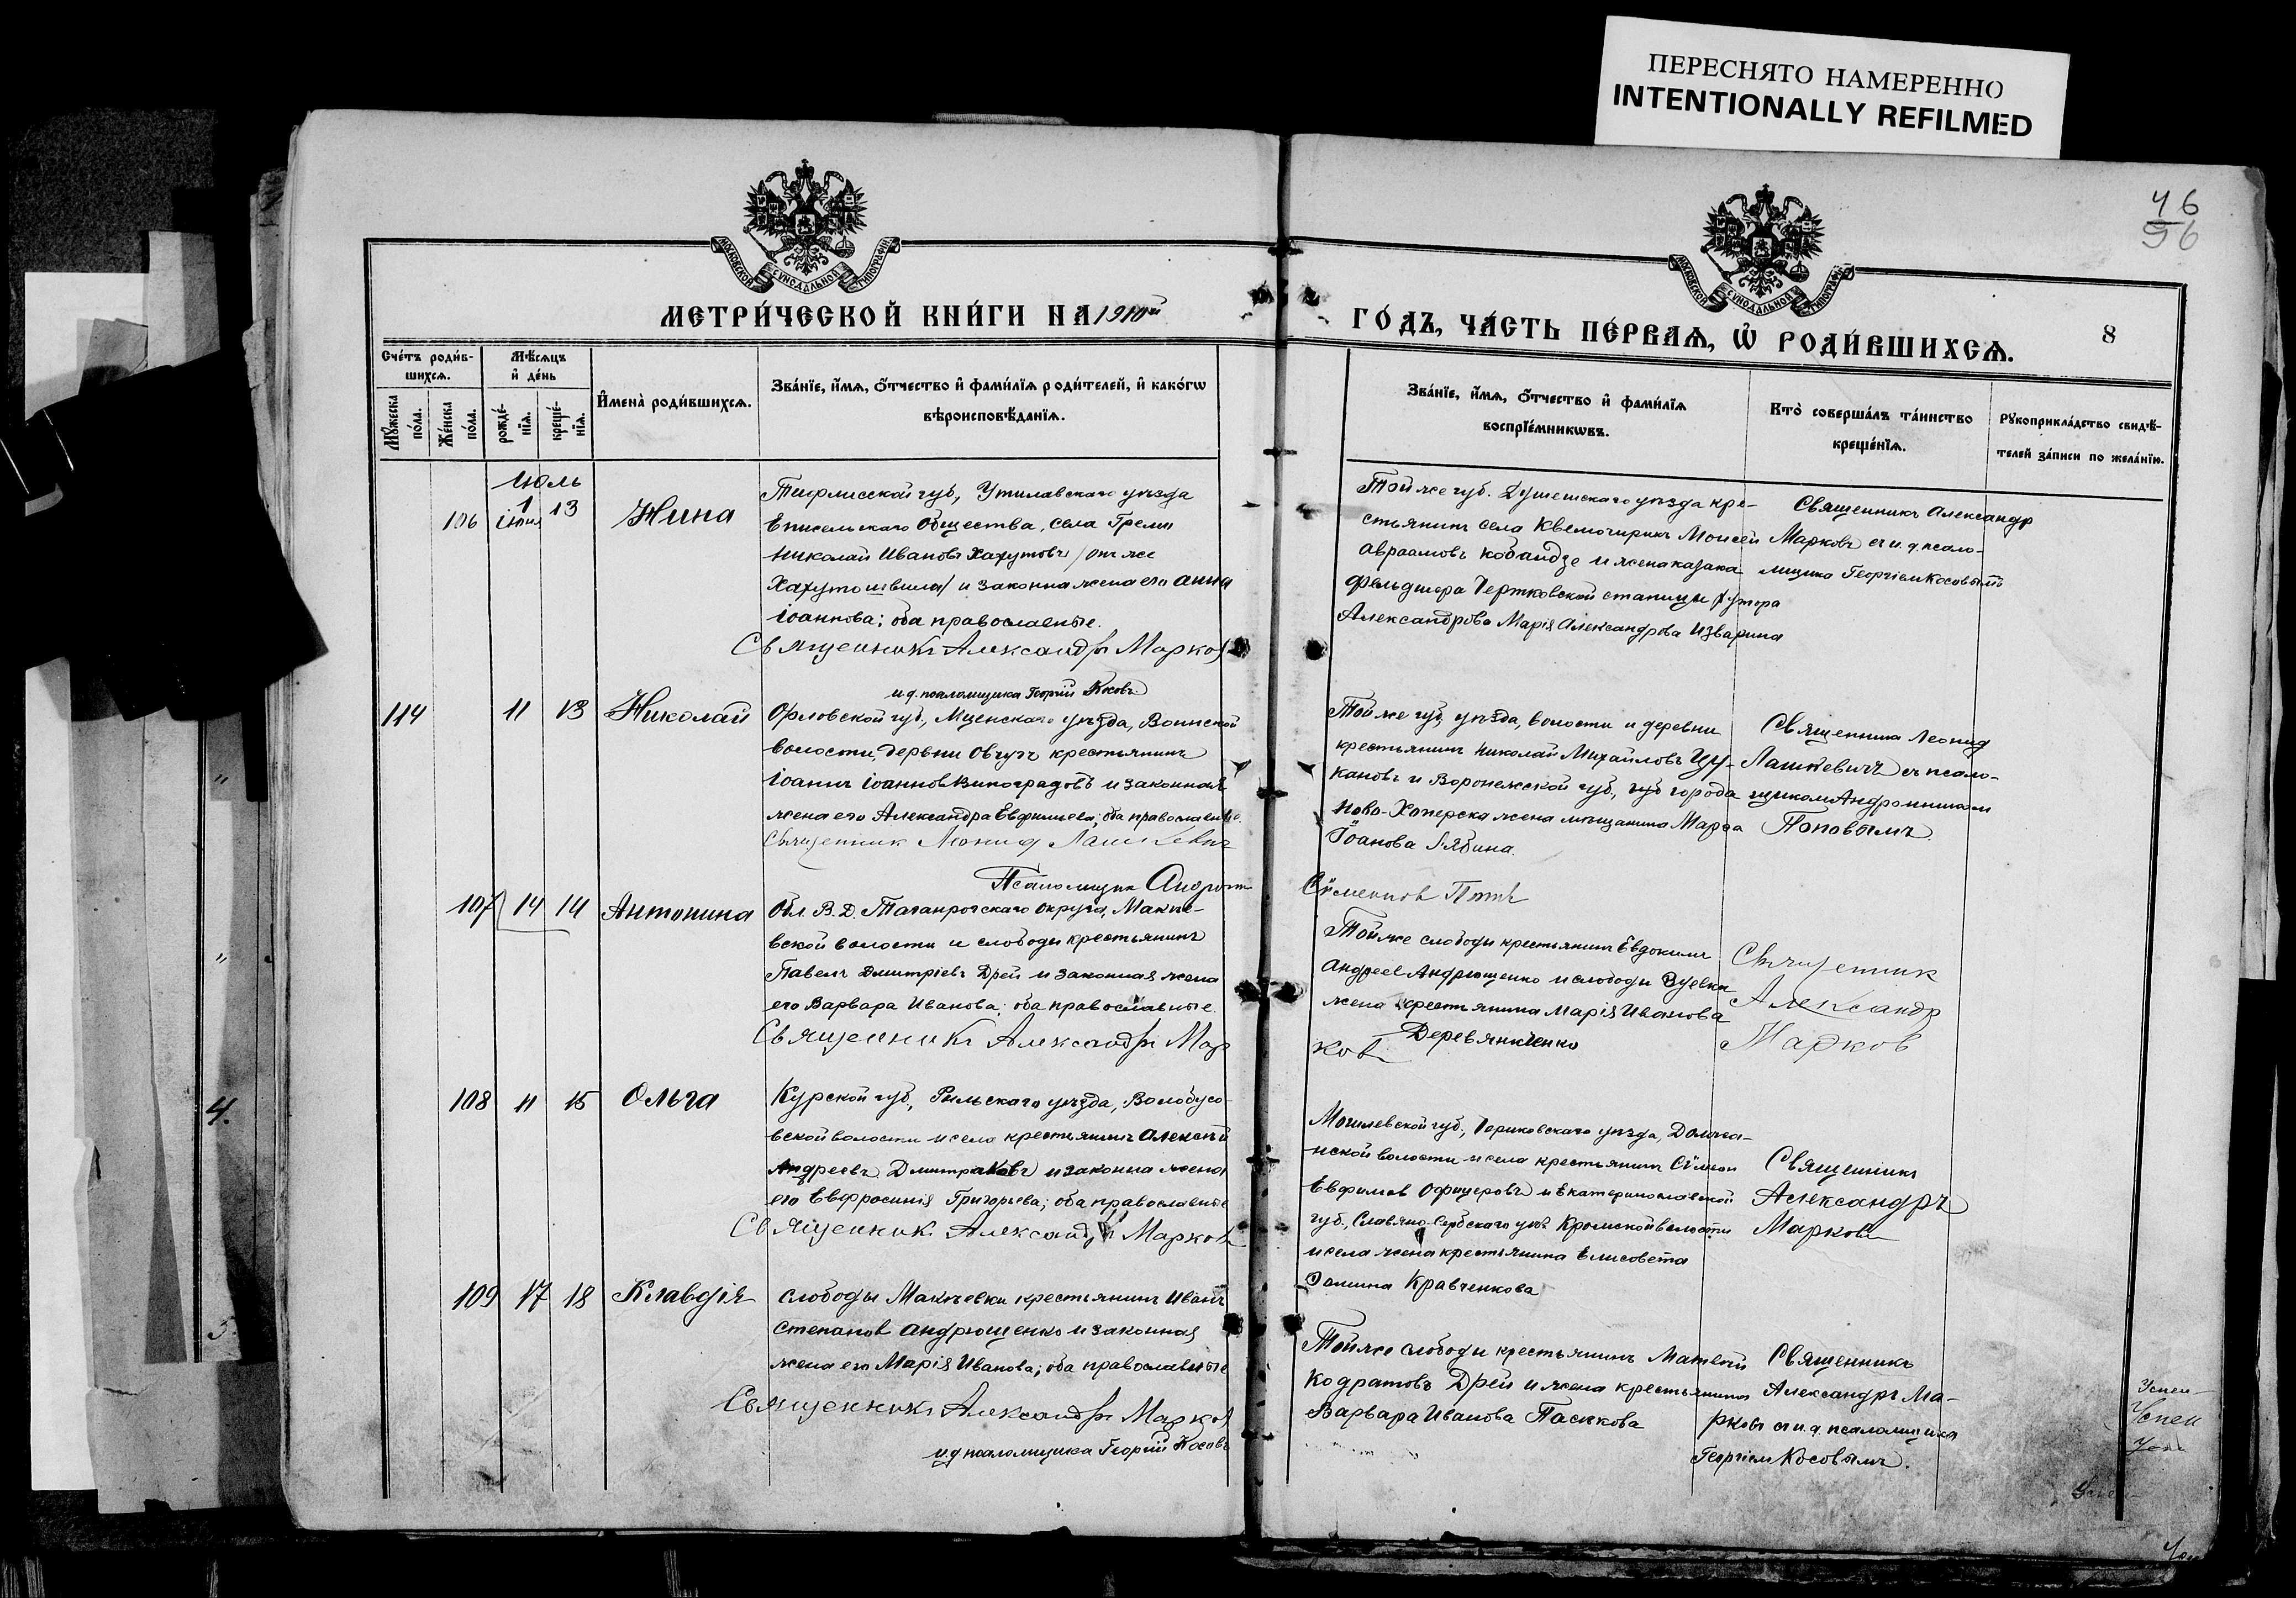 ПЕРЕСНЯТО НАМЕРЕННО
INTENTIONALLY REFILMED
46
56
МОСКОВСКОЙ СУНОДАЛЬНОЙ ТИПОГРАФІИ
МОСКОВСКОЙ СУНОДАЛЬНОЙ ТИПОГРАФІИ
МЕТРИ́ЧЕСКОЙ КНИ́ГИ НА 1910й
ГО́ДЪ, ЧА́СТЬ ПЕ́РВАѦ, Ѡ҆ РОДИ́ВШИХСѦ.
8
Сче́тъ роди́в-
шихсѧ.
Мꙋ́жеска по́ла.
Же́нска по́ла.
Мѣ́сѧцъ
и҆ де́нь
рожде́-
нїѧ.
креще́-
нїѧ.
И҆мена̀ роди́вшихсѧ.
Зва́нїе, и҆́мѧ, ѻ҆́тчество и҆ фами́лїѧ роди́телей, и҆ како́гѡ
вѣроисповѣ́данїѧ.
Зва́нїе, и҆́мѧ, ѻ҆́тчество и҆ фами́лїѧ
воспрїе́мникѡвъ.
Кто̀ соверша́лъ та́инство
креще́нїѧ.
Рꙋкоприкла́дство свидѣ́-
телей за́писи по жела́нїю.
Июль
106 1 іюня 13 Нина
Тифлисской губ., уѣзда
Енисельскаго Общества, села Греми
Николай Ивановъ Хахутовъ /онъ же
Хахутошвили/ и законна жена его Анна
Іоаннова; оба православные.
Священникъ Александръ Марковъ
и.д. псаломщика Георгій Косовъ
Той же губ. Душетскаго уѣзда кре-
стьянинъ села Моисей
Авраамовъ Кобаидзе и жена казака
фельдшера Чертковской станицы хутора
Александрова Марія Александрова Изварина
Священникъ Александръ
Марковъ съ и.д. псало-
мщика Георгіем Косовымъ
114 11 13 Николай
Орловской губ., Мценскаго уѣзда, Воинской
волости, деревни крестьянинъ
Іоаннъ Іоаннов Виноградовъ и законная
жена его Александра Евфимьева; оба православные.
Священник Леонид Лашкевич
Псаломщик
Той же губ, уѣзда, волости и деревни
крестьянинъ Николай Михайловъ Цу-
кановъ и Воронежской губ., губ города
Ново-Хоперска жена мѣщанина Марфа
Іоанова Рябина.
Священникъ Леонид
Лашкевичъ съ псало-
щиком Андронником
Поповымъ
107 14 14 Антонина
Обл. В. Д. Таганрогскаго округа, Макѣе-
вской волости и слободы крестьянинъ
Павелъ Дмитріевъ Дрей и законная жена
его Варвара Иванова; оба православные.
Священникъ Александръ Мар
ков
Той же слободы крестьянинъ Евдокимъ
Андреев Андрющенко и слободы Зуевки
жена крестьянина Марія Иванова
Деревянченко
Священник
Александр
Марков
108 11 15 Ольга
Курской губ., Рыльскаго уѣзда, Волобуе-
вской волости и села крестьянинъ Алексѣй
Андреевъ Дмитраковъ и законна жена
его Евфросинія Григорьева; оба православные
Священникъ Александръ Марковъ
Могилевской губ., уѣзда,
нской волости и села крестьянинъ Сѵмеон
Евфимов Офицеровъ и Екатеринославской
губ., Славяно-Сербскаго уѣз. волости
и села жена крестьянина Елисовета
Фомина Кравченкова
Священникъ
Александръ
Марковъ
109 17 18 Клавдія
слободы Макѣевки крестьянинъ Иванъ
Степанов Андрющенко и законная
жена его Марія Иванова; оба православные
Священникъ Александръ Марков
и.д. псаломщика Георгій Косовъ
Той же слободы крестьянинъ Матвѣй
Кодратовъ Дрей и жена крестьянина
Варвара Иванова Пасѣкова
Священникъ
Александръ Ма-
рковъ съ и.д. псаломщика
Георгіем Косовымъ.
4.
5.
Успен